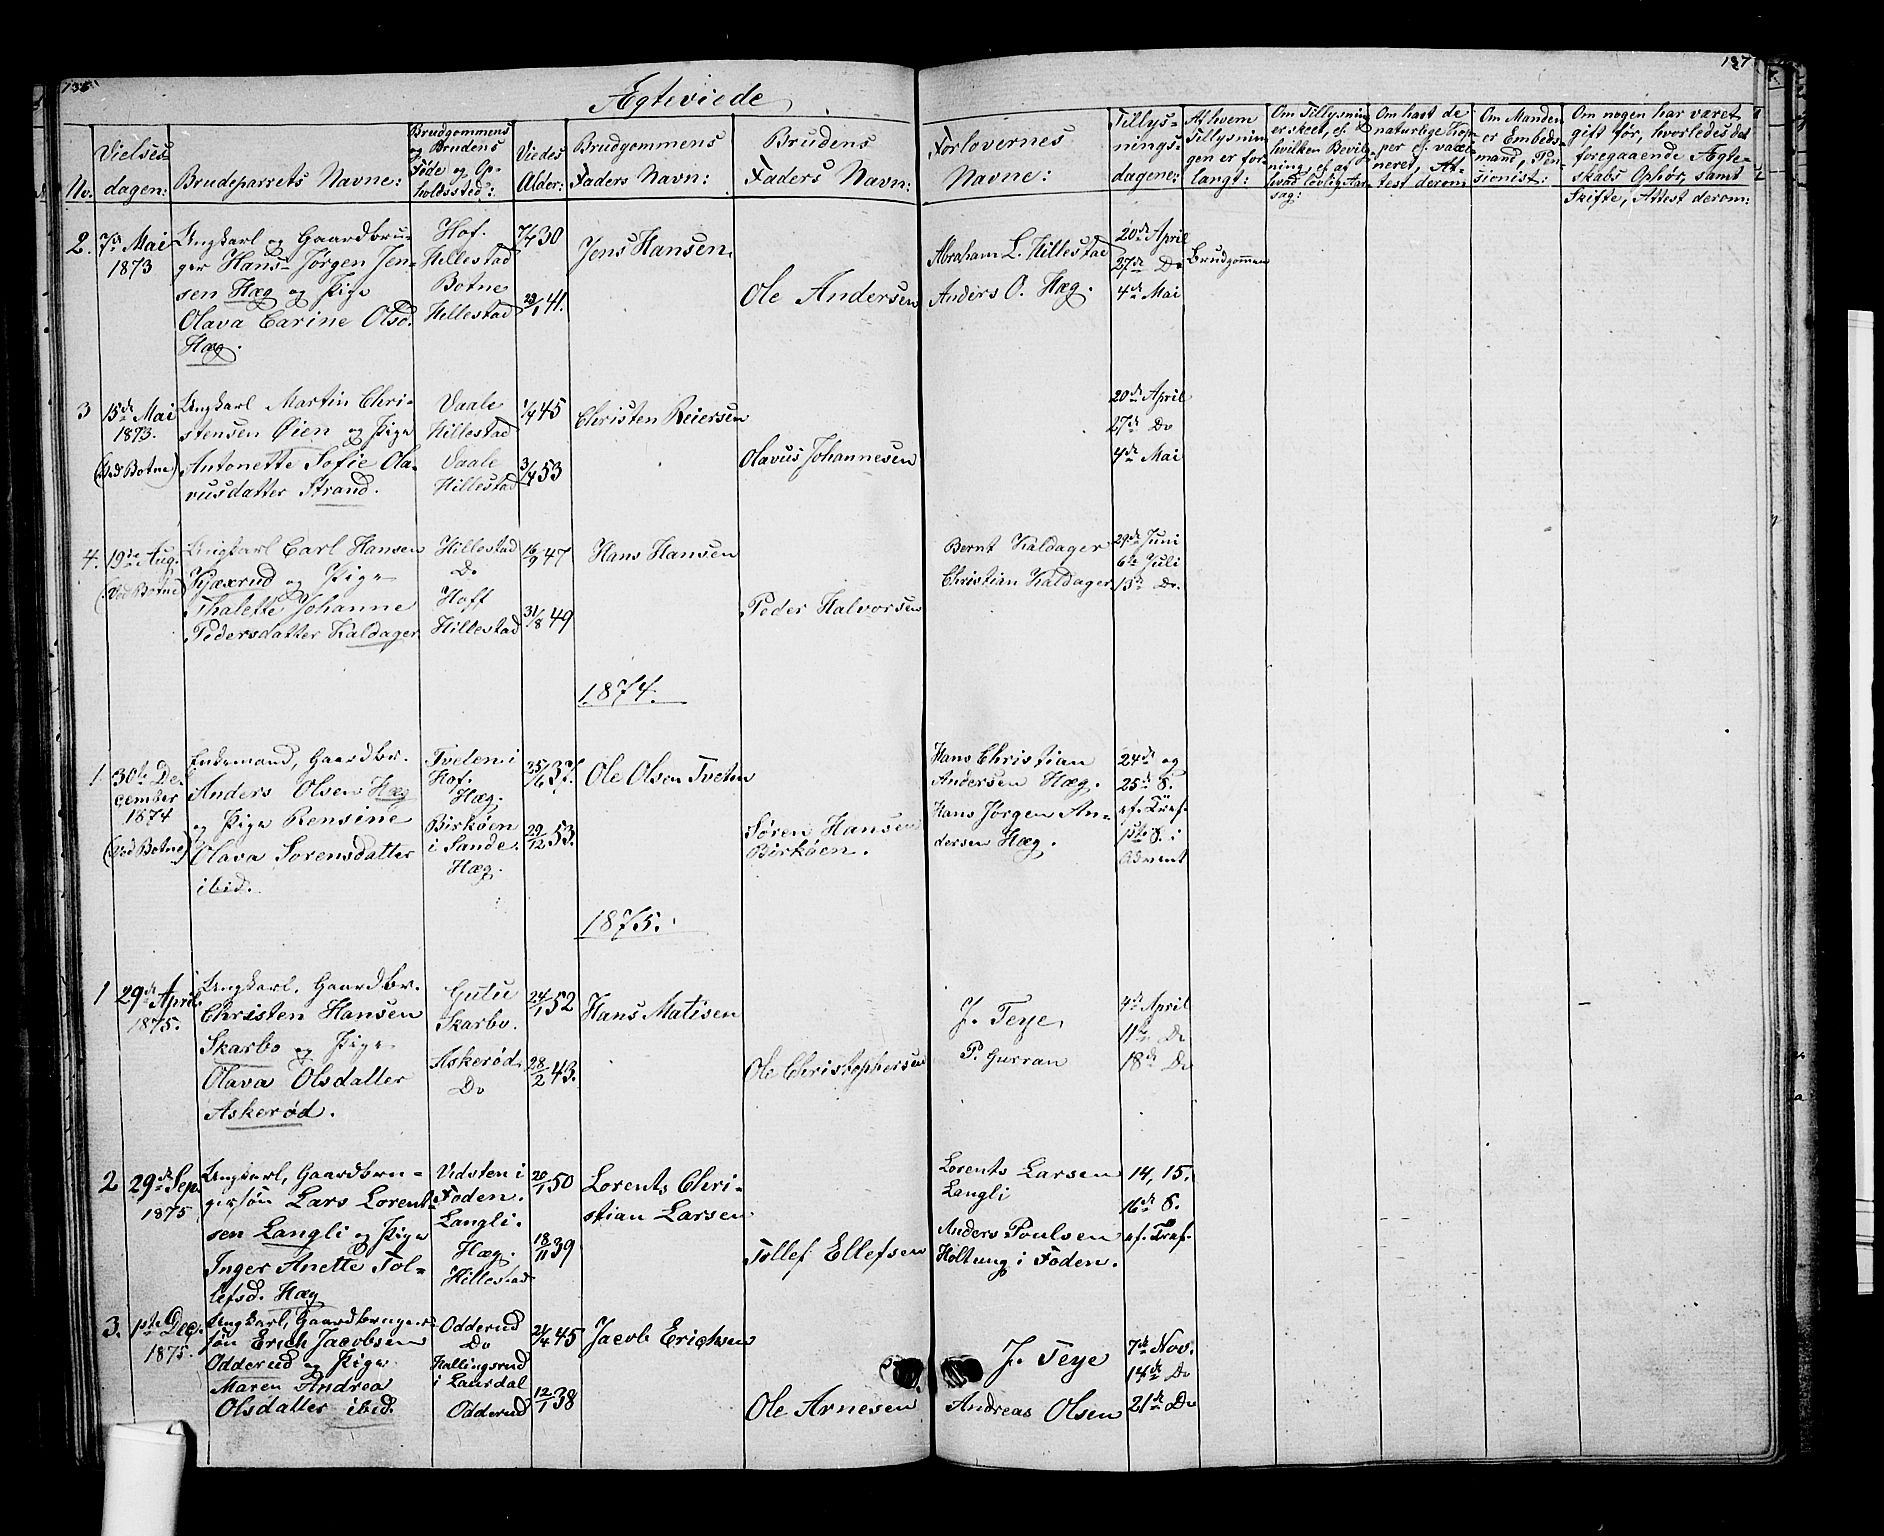 Ægteviede
137
No:
Vielses
dagen:
Brudeparrets Navne:
Brudgommens
og Brudens
Føde og Op-
holdssted:
Viedes
Alder:
Brudgommens
Faders Navn:
Brudens
Faders Navn:
Forlovernes
Navne:
Tillys-
nings-
dagene:
Af hvem
Tillysnin-
gen er for-
langt:
Om Tillysning
er skeet, ef.
hvilken Bevilg-
ning, ef. af
hvad lovlig Aar-
sag:
Om havt de
naturlige Kop-
per ef. vacci-
neret, At-
test derom
Om Manden
er Embeds-
mand, Pen-
sionist:
Om nogen har været
gift før, hvorledes det
foregaaende Ægte-
skabs Ophør, samt
Skifte, Attest derom:
2.
7de Mai
1873
Ungkarl og Gaardbru-
ger Hans Jørgen Jen-
sen Hæg og Pige
Olava Carine Olsd.
Hæg.
Hof.
Hillestad
Botne
Hillestad
7/7 30
23/1 41.
Jens Hansen
Ole Andersen
Abraham L. Hillestad
Anders O. Hæg.
20de April
27de Do
4de Mai
Brudgommen
3
15de Mai
1873.
(Ved Botne)
Ungkarl Martin Chri-
stensen Øien og Pige
Antonette Sofie Ola-
vusdatter Strand.
Vaale
Hillestad
Vaale
Hillestad
1/7 45
3/7 53
Christen Reiersen
Olavus Johannesen
20de April
27de Do
4de Mai
4.
19de Aug.
(Ved Botne)
Ungkarl Carl Hansen
Kjæxrud og Pige
Thalette Johanne
Pedersdatter Kaldager
Hillestad
Do
Hoff
Hillestad
16/9 47
31/8 49
Hans Hansen
Peder Halvorsen
Bernt Kaldager
Christian Kaldager
29de Juni
6te Juli
13de Do.
1874.
1.
30te De-
cember
1874
(Ved Botne)
Enkemand, Gaardbr.
Anders Olsen Hæg
og Pige Rensine
Olava Sorensdatter
ibid.
Tveten i
Hof.
Hæg.
Birkøen
i Sande.
Hæg.
25/6 37.
29/12 53.
Ole Olsen Tveten
Søren Hansen
Birkøen.
Hans Christian
Andersen Hæg.
Hans Jørgen An-
dersen Hæg.
24de og
25de S.
ef. Tref.
1ste S. i
Advent
1875.
1
29de April
1875.
Ungkarl, Gaardbr.
Christen Hansen
Skarbo og Pige
Olava Olsdatter
Askerød.
Gutu
Skarbo.
Askerød
Do
24/1 52
28/2 43.
Hans Matisen
Ole Christophersen
J. Teye
P. Gurran
4de April
11te Do
18de Do
2
29de Sep.
1875
Ungkarl, Gaardbru-
gersøn Lars Lorent-
sen Langli og Pige
Inger Anette Tol-
lefsd. Hæg
Vidsten i
Foden.
Langli.
Hæg.
Hillestad
20/1 50
18/11 39
Lorents Chri-
stian Larsen
Tollef Ellefsen
Lorents Larsen
Langli
Anders Poulsen
Holtung i Foden.
14, 15.
16de S.
ef. Tref.
3.
1ste Dec.
1875.
Ungkarl, Gaardbruger-
søn Erich Jacobsen
Odderud og Pige
Maren Andrea
Olsdatter ibid.
Odderud
Do
Hallingsrud
i Laurdal
Odderud
21/4 45
12/1 38
Jacob Erichsen
Ole Arnesen
J. Teye
Andreas Olsen
7de Nov.
14de Do
21de Do